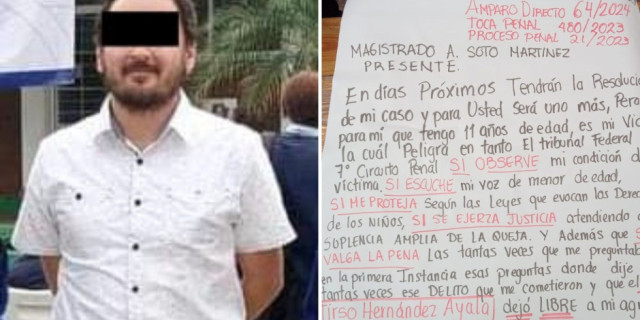 AMPARO DIRECTO 64/2024
TOCA PENAL 480/2023
PROCESO PENAL 21/2023
MAGISTRADO A. SOTO MARTINEZ
PRESENTE.
En días Próximos Tendrán la Resoluci
de mi caso y para Usted Será uno más, Pero
para mí que tengo 11 años de edad, es mi Vid
la cuál Peligra en tanto El tribunal Federal
7° Circuito Penal SI OBSERVE mi condición d
víctima, SI ESCUCHE mi voz de menor de edad,
SI ME PROTEJA Según las Leyes que evocan los Derec
de los NIÑOS, SI SE EJERZA JUSTICIA atendiendo a
SUPLENCIA AMPLIA DE LA QUEJA. Y Además que S
VALGA LA PENA Las tantas veces que me preguntab
en la primera Instancia esas preguntas donde dije
tantas veces ese DELITO que me cometieron y que el
TIRSO Hernández Ayala dejó LIBRE a mi ag